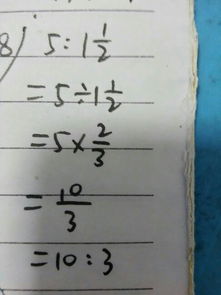 8) 5:1 1/2
=5÷1 1/2
=5×2/3
=10/3
=10:3